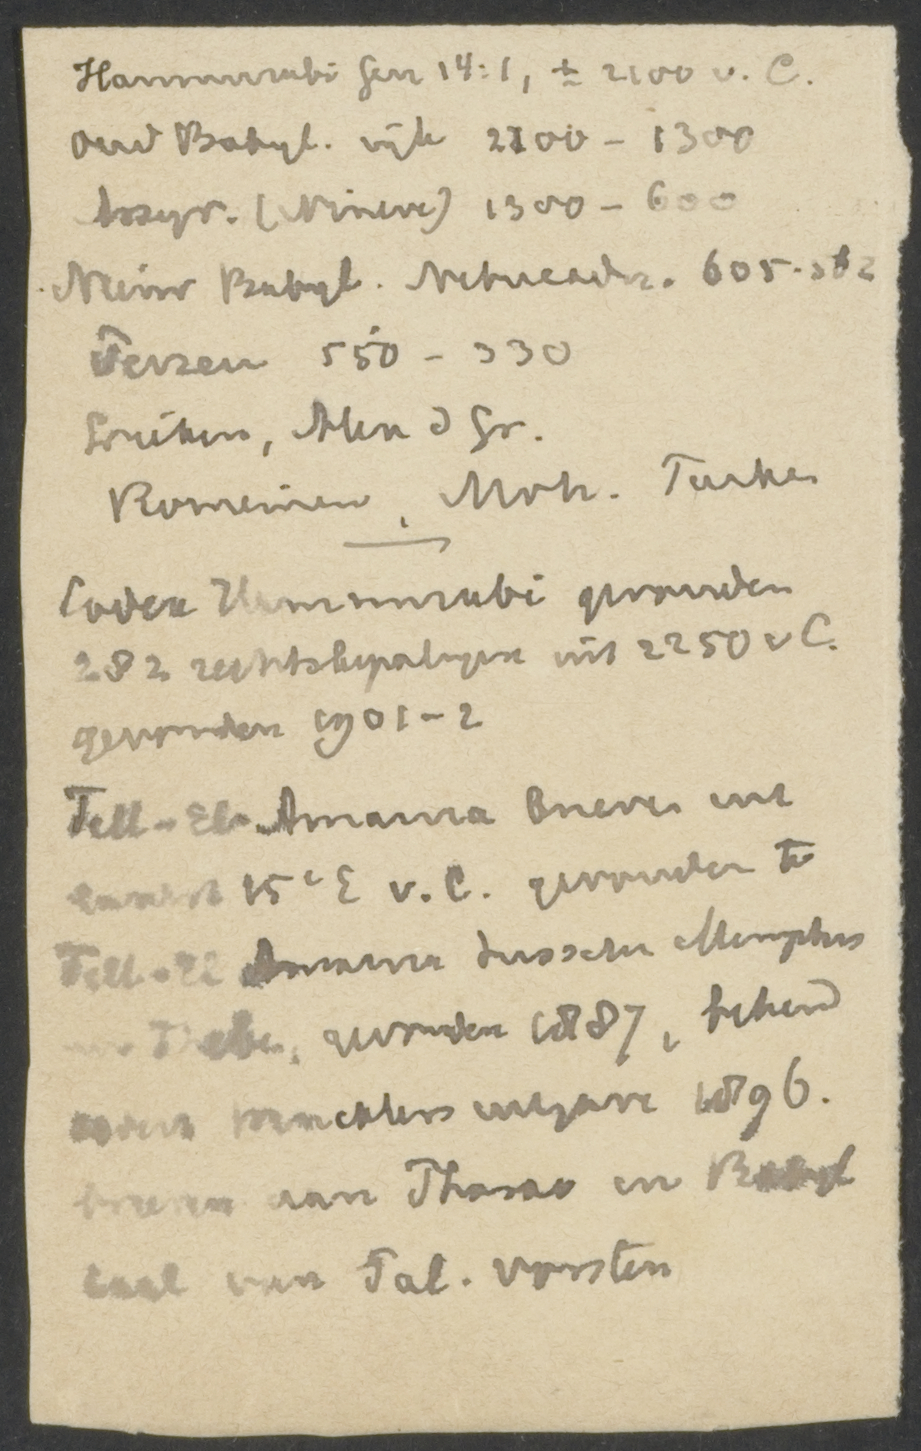 Hammurabi Gen 14:1, ± 2100 v. C.
Oud Babyl. rijk 2100 - 1300
Assyr. (Nineve) 1300 - 600
Nieuw Babyl. Nebucadn. 605-562
Perzen 550 - 330
Grieken, Alex d Gr.
Romeinen, Moh. Turken
Codex Hammurabi gevonden
282 rechtsbepalingen uit 2250 v C.
gevonden 1901-2
Tell-El-Amarna Brieven uit
15e E v. C. gevonden te
Tell-El Amarna tusschen Memphis
en Thebe, gevonden 1887, bekend
door Wincklers uitgave 1896.
brieven aan Pharao in Babyl
taal van Pal. vorsten